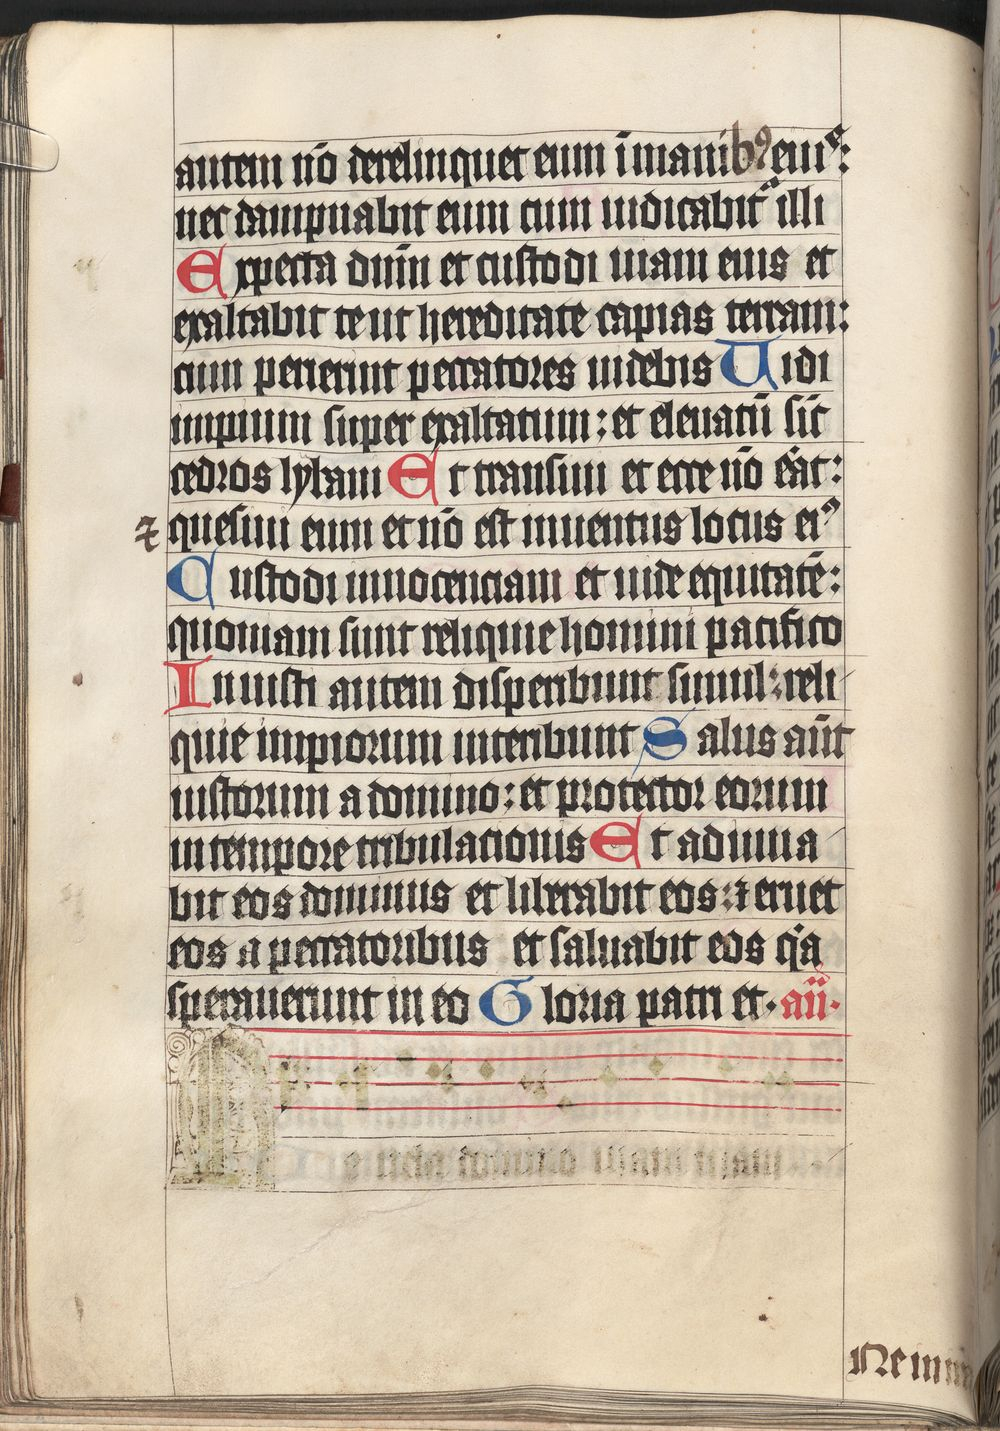 autem nō derelinquet eum ī manibꝰ eiuˢ:
nec dampnabit eum cum iudicabit̉ illi
Expecta dn̄m et custodi uiam eius et
exaltabit te ut hereditate capias terram:
cum perierint peccatores uidebis Uidi
impium super exaltatum: et eleuatū sic̄
cedros lybani Et transiui et ecce nō erat:
⁊ quesiui eum et nō est inuentus locus eiꝰ
Custodi innocenciam et uide equitatē:
quoniam sunt reliquie homini pacifico
Iniusti autem disperibunt simul: reli
quie impiorum interibunt Salus aūt
iustorum a domino: et protector eorum
in tempore tribulacionis Et adiuua
bit eos dominus et liberabit eos: ⁊ eruet
eos a peccatoribus et saluabit eos q̇a
sperauerunt in eo Gloria patri et· añ·
domino uiam tuam
Ne inm